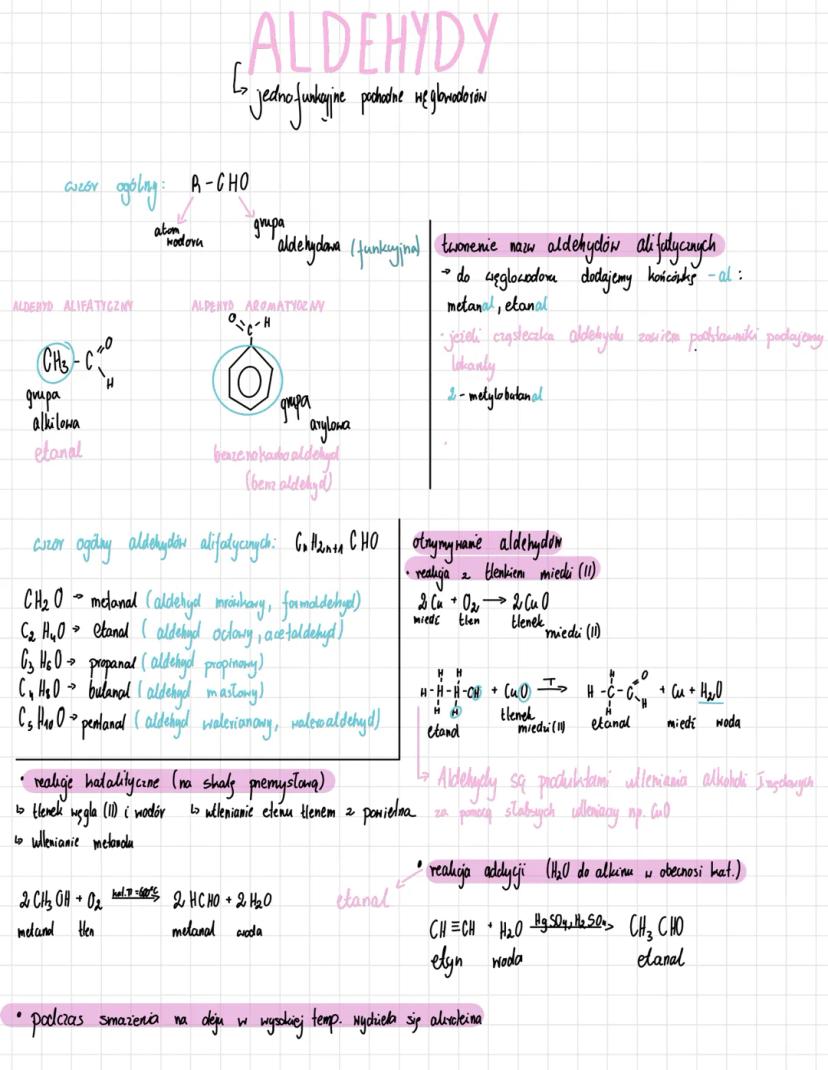 ALDEHYDY
↳ jednofunkcyjne pochodne węglowodorów
wzór ogólny: R-CHO
atom wodoru
grupa aldehydowa (funkcyjna)
ALDEHYD ALIFATYCZNY
CH3-C
O
H
grupa
alkilowa
etanal
ALDEHYD AROMATYCZNY
O
C-H
grupa
arylowa
benzenokarboaldehyd
(benzaldehyd)
tworzenie nazw aldehydów alifatycznych
→ do węglowodoru dodajemy końcówkę -al:
metanal, etanal
· jeżeli cząsteczka aldehydu zawiera podstawniki podajemy
lokanty
2-metylobutanal
wzór ogólny aldehydów alifatycznych: CnH2n+1 CHO
CH2O → metanal (aldehyd mrówkowy, formaldehyd)
C2H4O → etanal (aldehyd octowy, acetaldehyd)
C3H6O → propanal (aldehyd propinowy)
C4H8O → butanal (aldehyd masłowy)
C5H10O → pentanal (aldehyd walerianowy, waleroaldehyd)
otrzymywanie aldehydów
• reakcja z tlenkiem miedzi (II)
2Cu + O2 → 2CuO
miedź tlen tlenek
miedzi (II)
H H
H-H-H-OH + CuO T→ H-C-C O H + Cu + H2O
H H
etanol tlenek miedzi (II) etanal miedź woda
↳ Aldehydy są produktami utleniania alkoholi I rzędowych
za pomocą słabszych utleniaczy np. CuO
• reakcje katalityczne (na skalę przemysłową)
↳ tlenek węgla (II) i wodór ↳ utlenianie etenu tlenem z powietrza
↳ utlenianie metanolu
2CH3OH + O2 kat. T=600°C→ 2HCHO + 2H2O
metanol tlen metanal woda
• reakcja addycji (H2O do alkinu w obecności kat.)
etanal
CH≡CH + H2O HgSO4, H2SO4→ CH3CHO
etyn woda etanal
• podczas smażenia na oleju w wysokiej temp. wydziela się akroleina